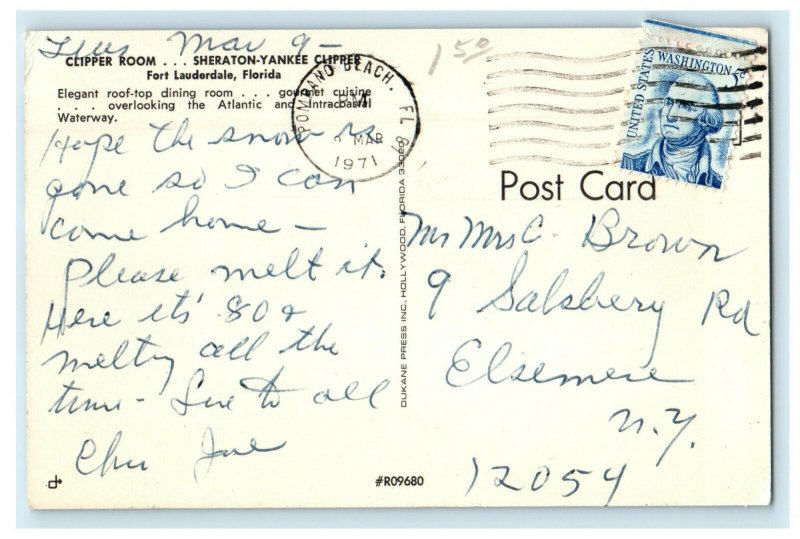 Tues Mar 9 -
CLIPPER ROOM . . . SHERATON-YANKEE CLIPPER
Fort Lauderdale, Florida
Elegant roof-top dining room . . . gourmet cuisine
. . . overlooking the Atlantic and Intracoastal
Waterway.
Hope the snow is
gone so I can
come home -
Please melt it.
Here it's 80 &
melting all the
time - Love to all
150
POMPANO BEACH, FL
PM
MAR
1971
UNITED STATES
WASHINGTON 5c
Post Card
Mr Mrs C. Brown
9 Salsbery Rd
Elsemere
N.Y.
12054
DUKANE PRESS INC, HOLLYWOOD, FLORIDA 33020
#R09680